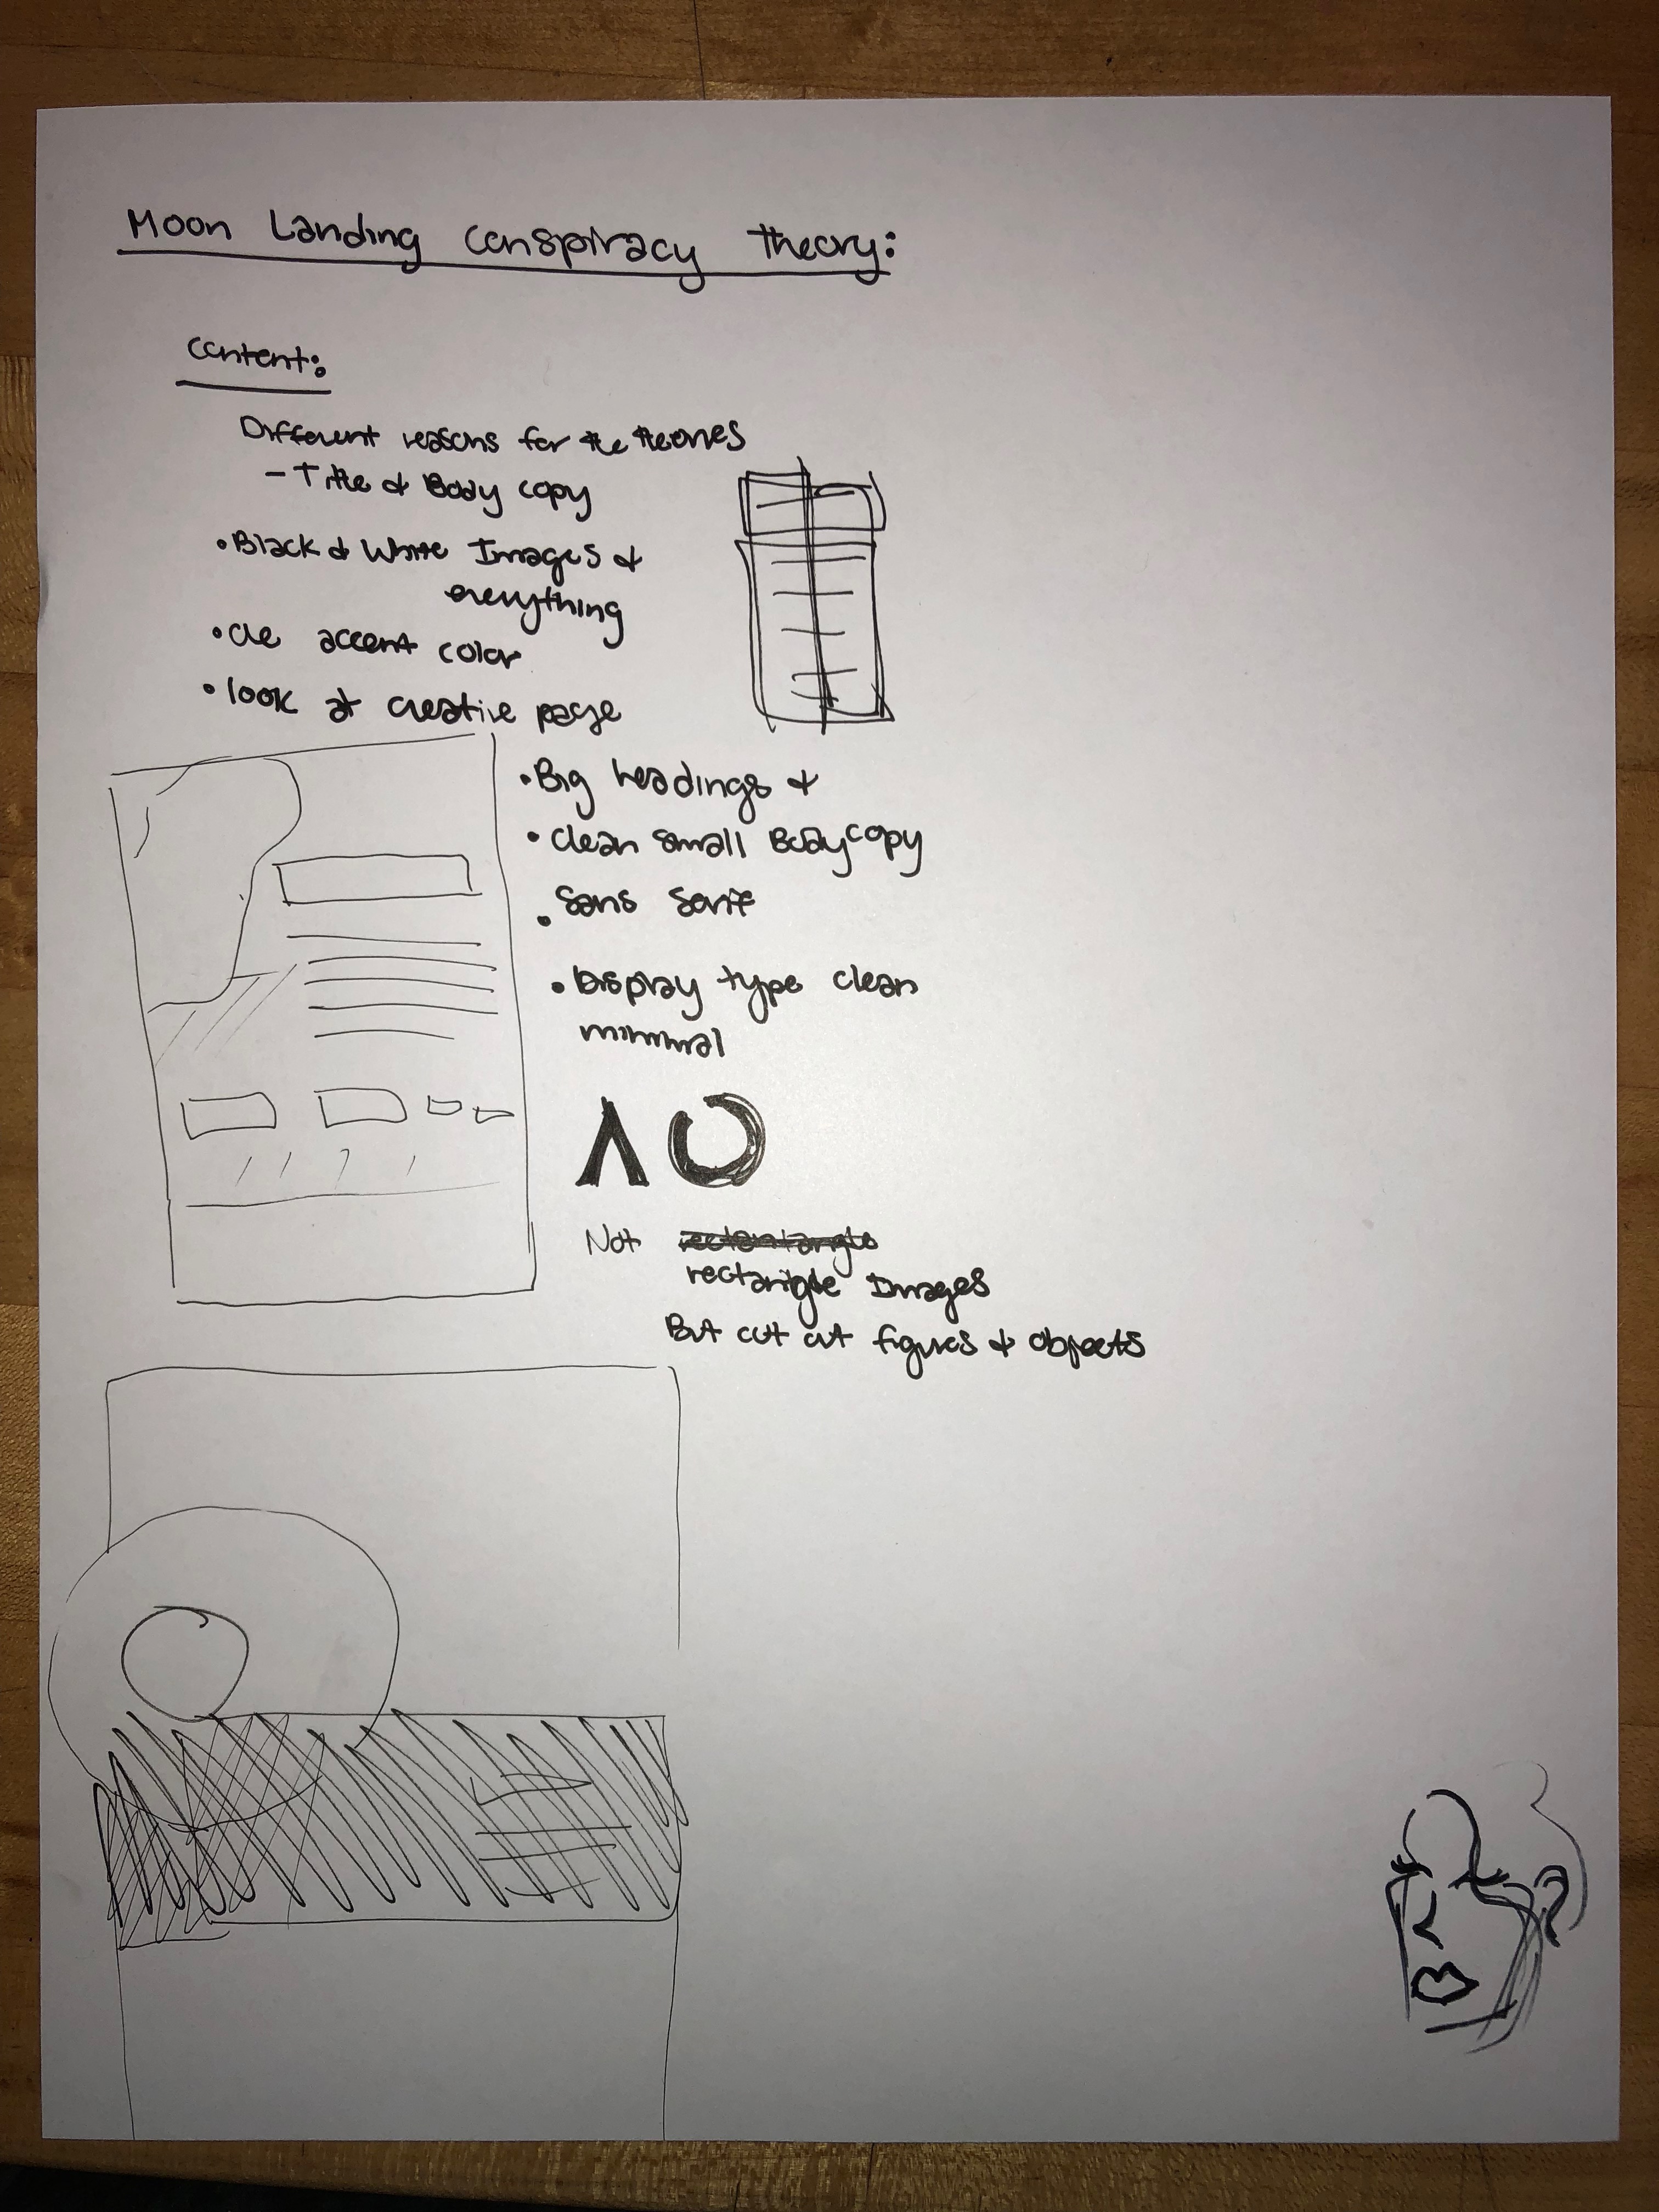 Moon Landing Conspiracy Theory:
Content:
Different reasons for the theories
- Title & Body copy
• Black & White Images &
everything
• One accent color
• look at creative page
• Big headings &
• Clean small Body copy
• Sans Serif
• Display type clean
minimal
Not rectentangle
rectangle Images
But cut out figures & objects